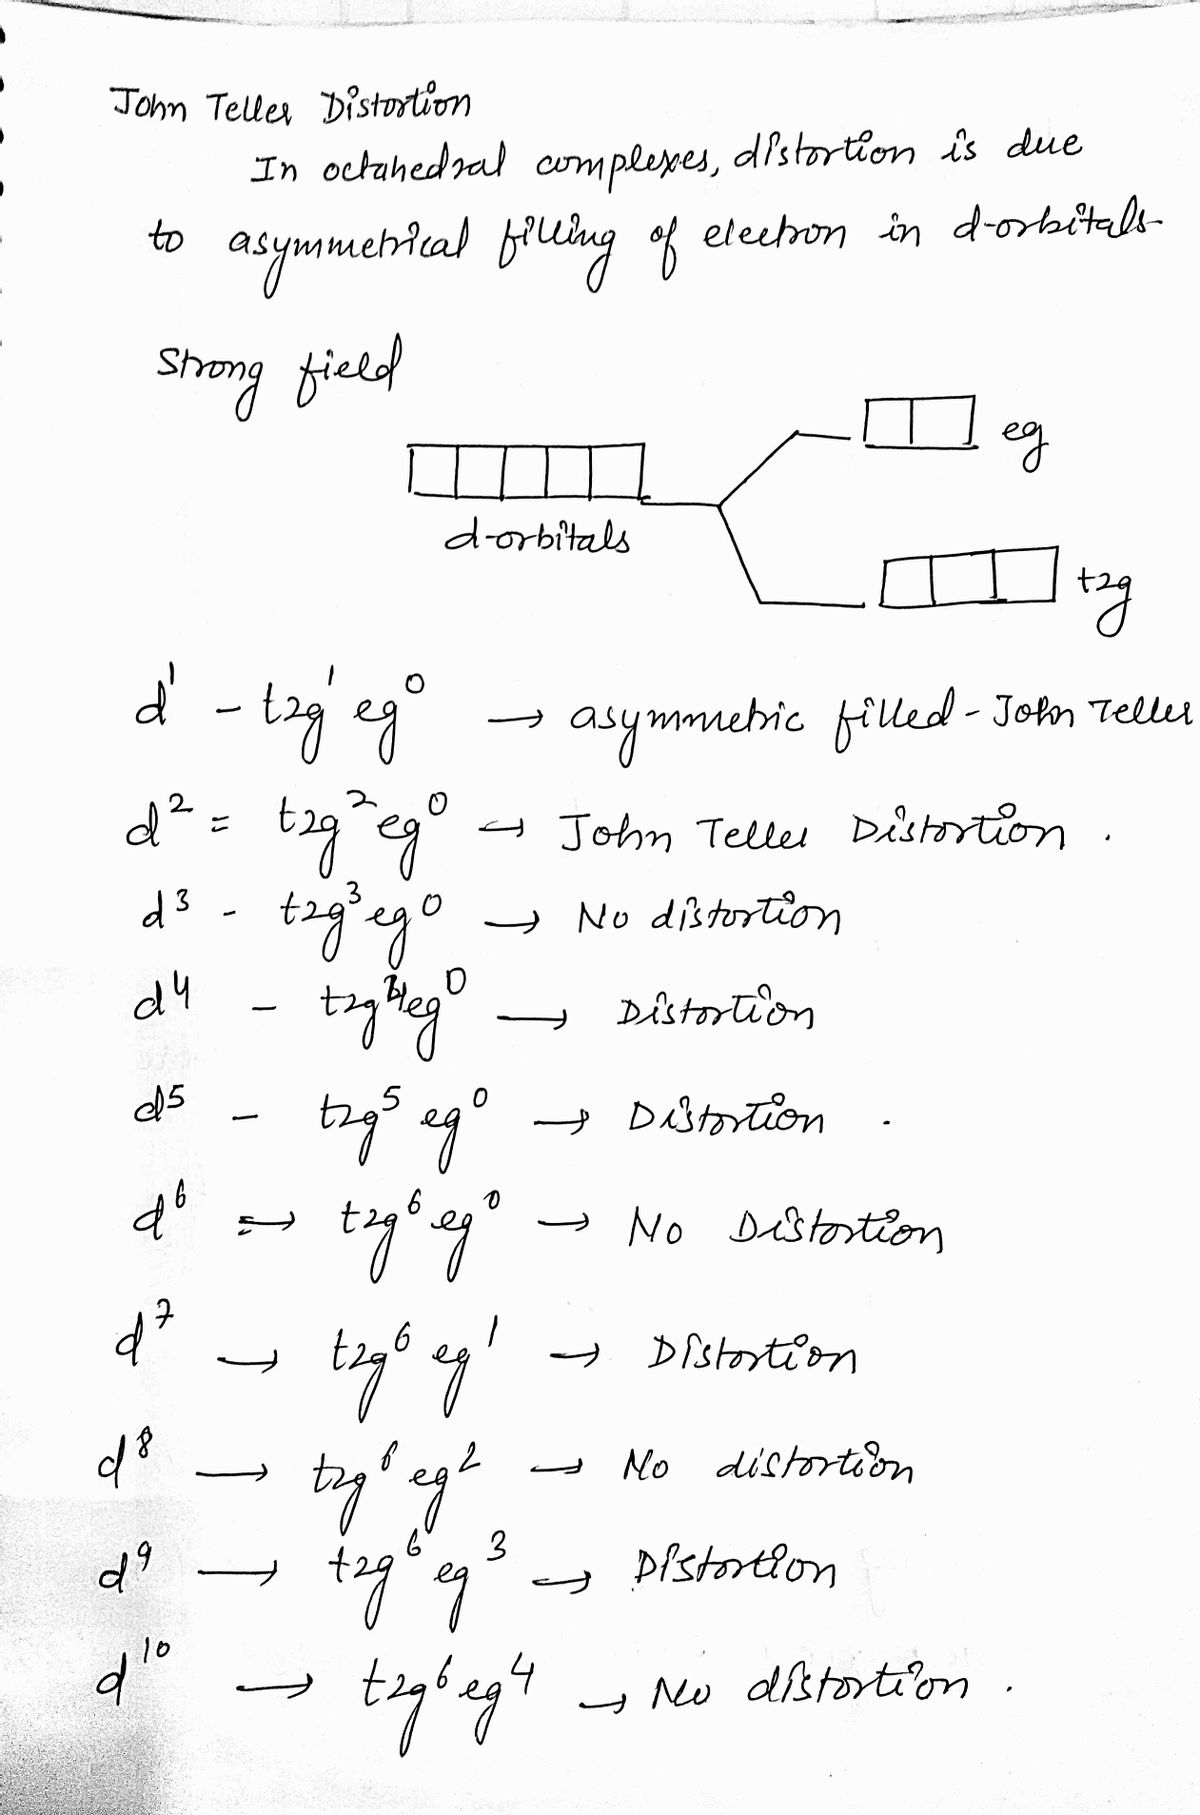 John Teller Distortion
In octahedral complexes, distortion is due
to asymmetrical filling of electron in d-orbitals
Strong field
eg
d-orbitals
t2g
d¹ - t2g¹ eg⁰ → asymmetric filled - John Teller
d² = t2g² eg⁰ → John Teller Distortion .
d³ - t2g³ eg⁰ → No distortion
d⁴ - t2g⁴ eg⁰ → Distortion
d⁵ - t2g⁵ eg⁰ → Distortion .
d⁶ => t2g⁶ eg⁰ → No Distortion
d⁷ → t2g⁶ eg¹ → Distortion
d⁸ → t2g⁶ eg² → No distortion
d⁹ → t2g⁶ eg³ → Distortion
d¹⁰ → t2g⁶ eg⁴ → No distortion .